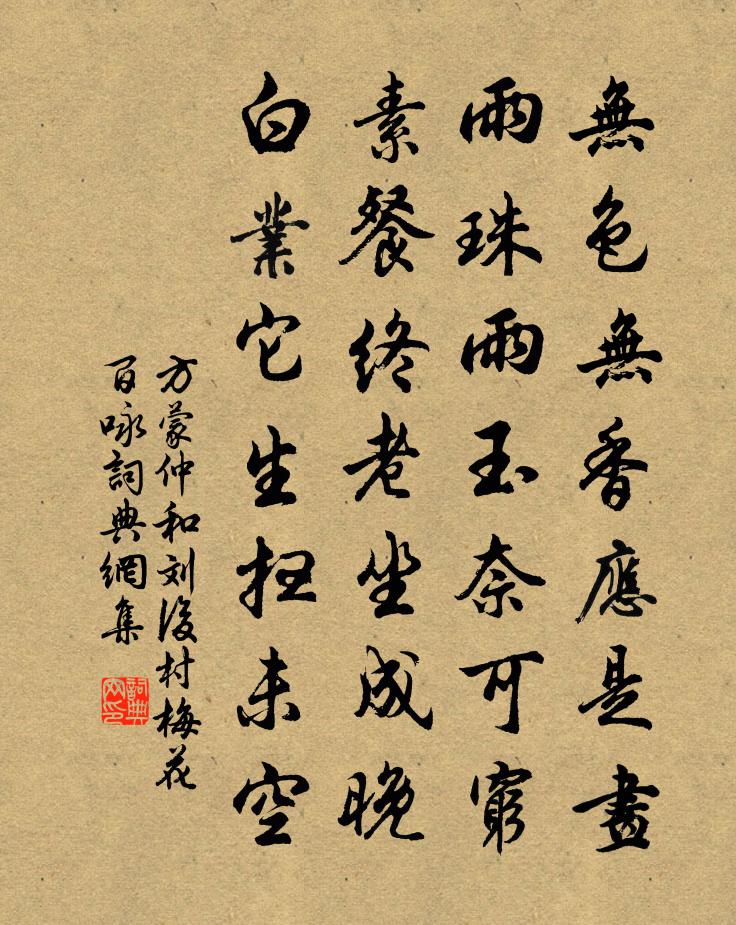 無色無香應是畫
雨珠雨玉奈可窮
素餐終老坐成晚
白業它生抂未空
方蒙仲和刘後村梅花
百咏詞典網集
詞典网印